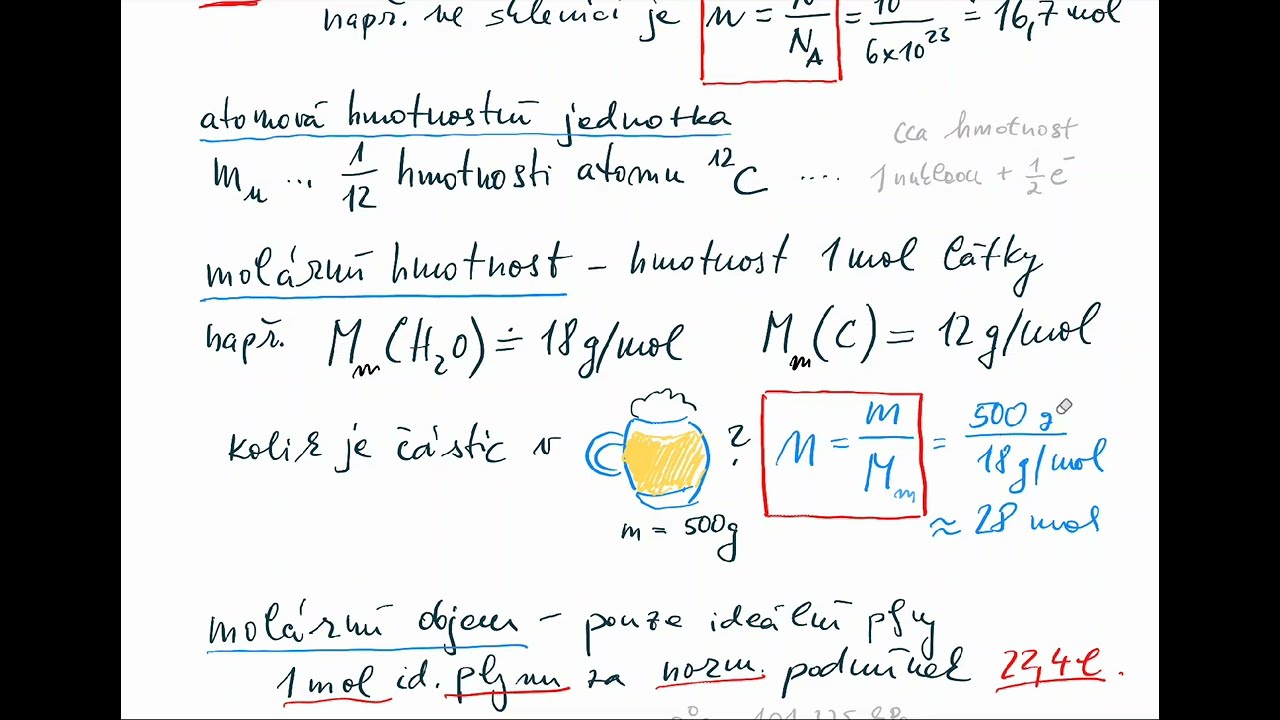 např. ve sklenici je n = N/N_A = /6×10^23 ≐ 16,7 mol
atomová hmotnostní jednotka
m_u ... 1/12 hmotnosti atomu ^12C ....
cca hmotnost
1 nukleonu + 1/2 e^-
molární hmotnost – hmotnost 1 mol látky
např. M_m(H_2O) ≐ 18 g/mol M_m(C) = 12 g/mol
kolik je částic v ? n = m/M_m = 500 g/18 g/mol
≈ 28 mol
m = 500g
molární objem – pouze ideální plyny
1 mol id. plynu za norm. podmínek 22,4 l.